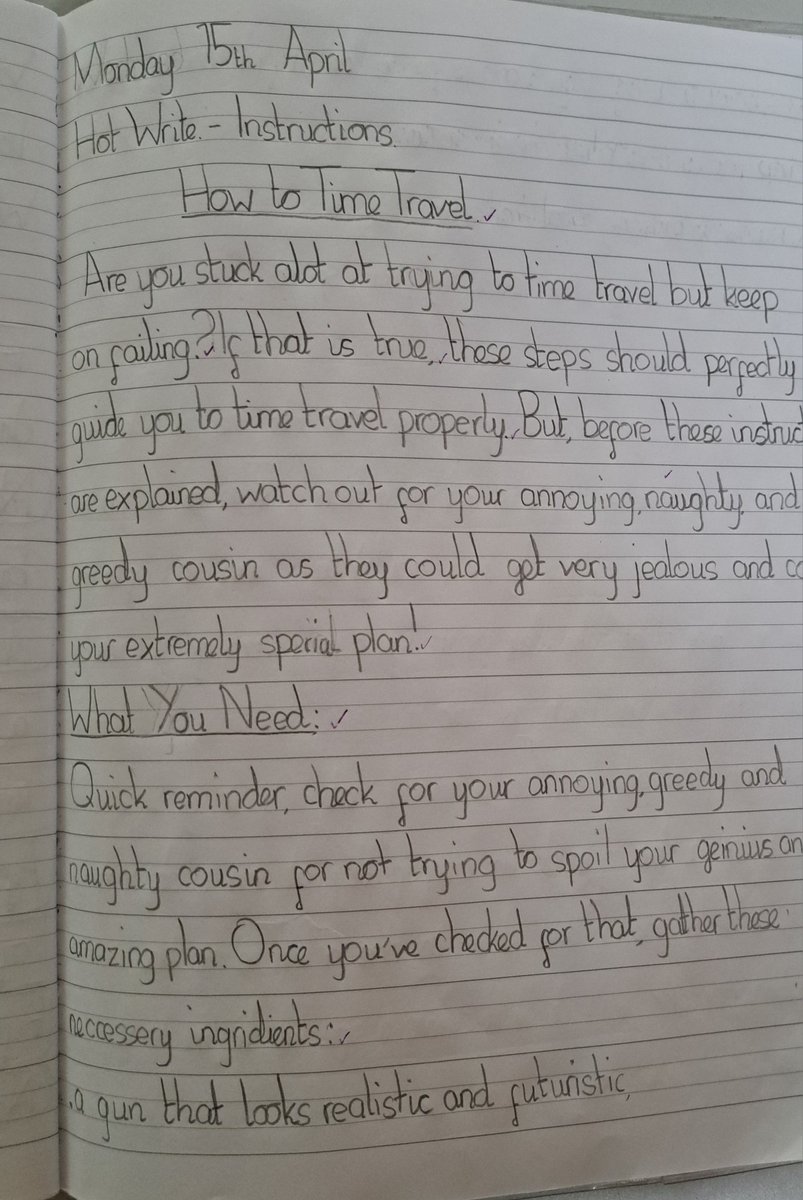 Monday 15th April
Hot Write. - Instructions.
How to Time Travel.
Are you stuck alot at trying to time travel but keep
on failing? If that is true, these steps should perfectly
guide you to time travel properly. But, before these instruc
are explained, watch out for your annoying, naughty, and
greedy cousin as they could get very jealous and co
your extremely special plan!
What You Need:
Quick reminder, check for your annoying, greedy and
naughty cousin for not trying to spoil your geinius an
amazing plan. Once you've checked for that, gather these
neccessery ingridients:
.a gun that looks realistic and futuristic,